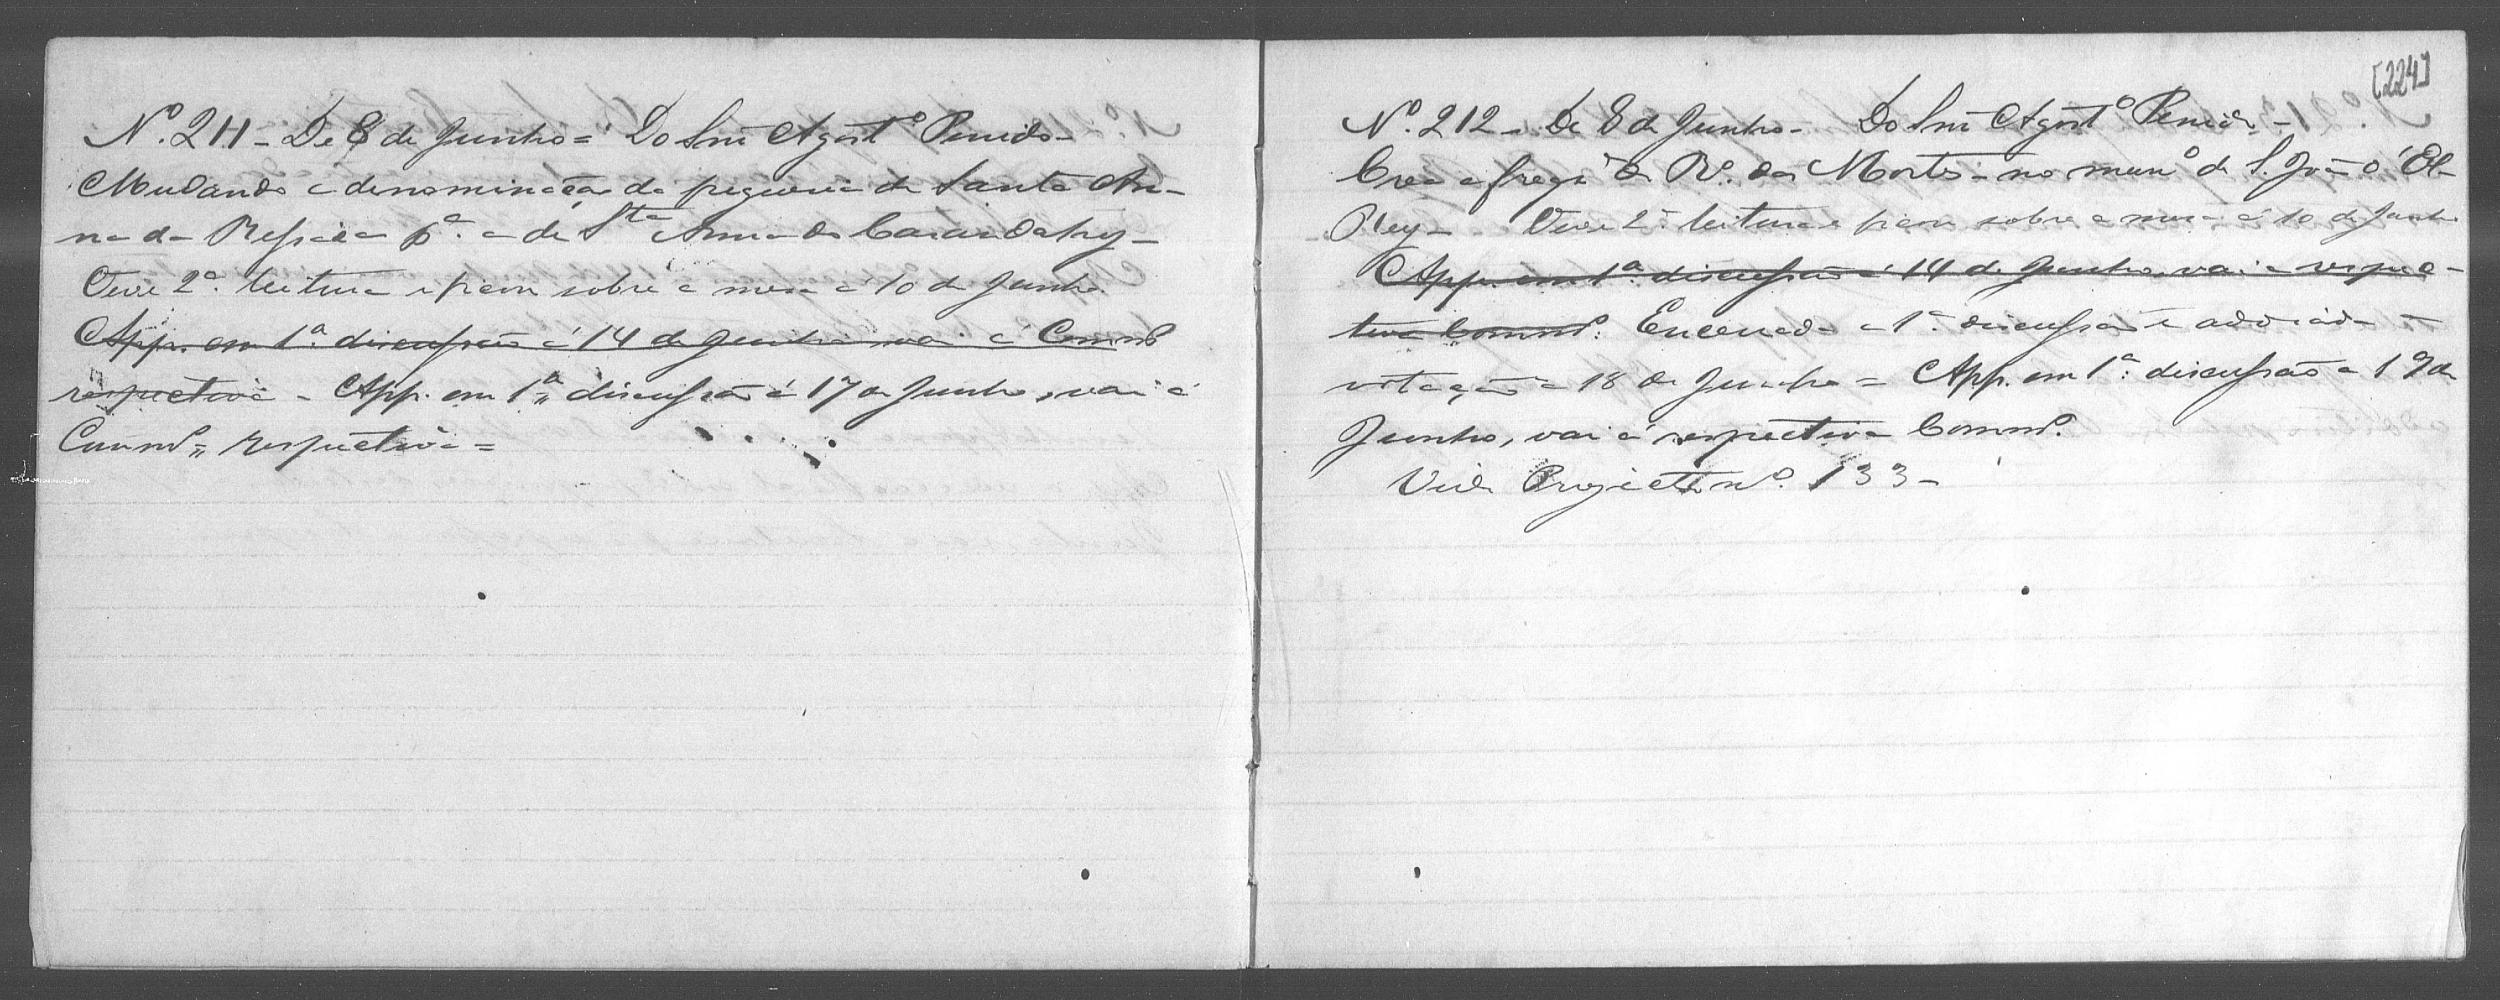 Nº. 211 - De 8 de Junho = Do Snr Agostº Penido -
Mudando a denominação da freguesia de Santa An-
na da Ressaca pª. a de Sta Anna do Carandahy -
Teve 2ª. leitura e ficou sobre a mesa a 10 de Junho.
App. em 1ª. discussão á 14 de Junho vai á Commº
respectiva - App. em 1ª discussão á 17 de Junho, vai á
Commº respectiva =
[224]
Nº. 212 - De 8 de Junho - Do Snr Agostº Penido -
Crea a fregª do Rº. das Mortes - no munº de S. João d'El-
Rey - Teve 2ª leitura e ficou sobre a mesa á 10 de Junho
App. em 1ª. discussão á 14 de Junho, vai a respec-
tiva Commº. Encerrada a 1ª discussão e adiada a
votação a 18 de Junho = App. em 1ª. discussão a 19 de
Junho, vai á respectiva Commº.
Vide Projecto nº. 133 -